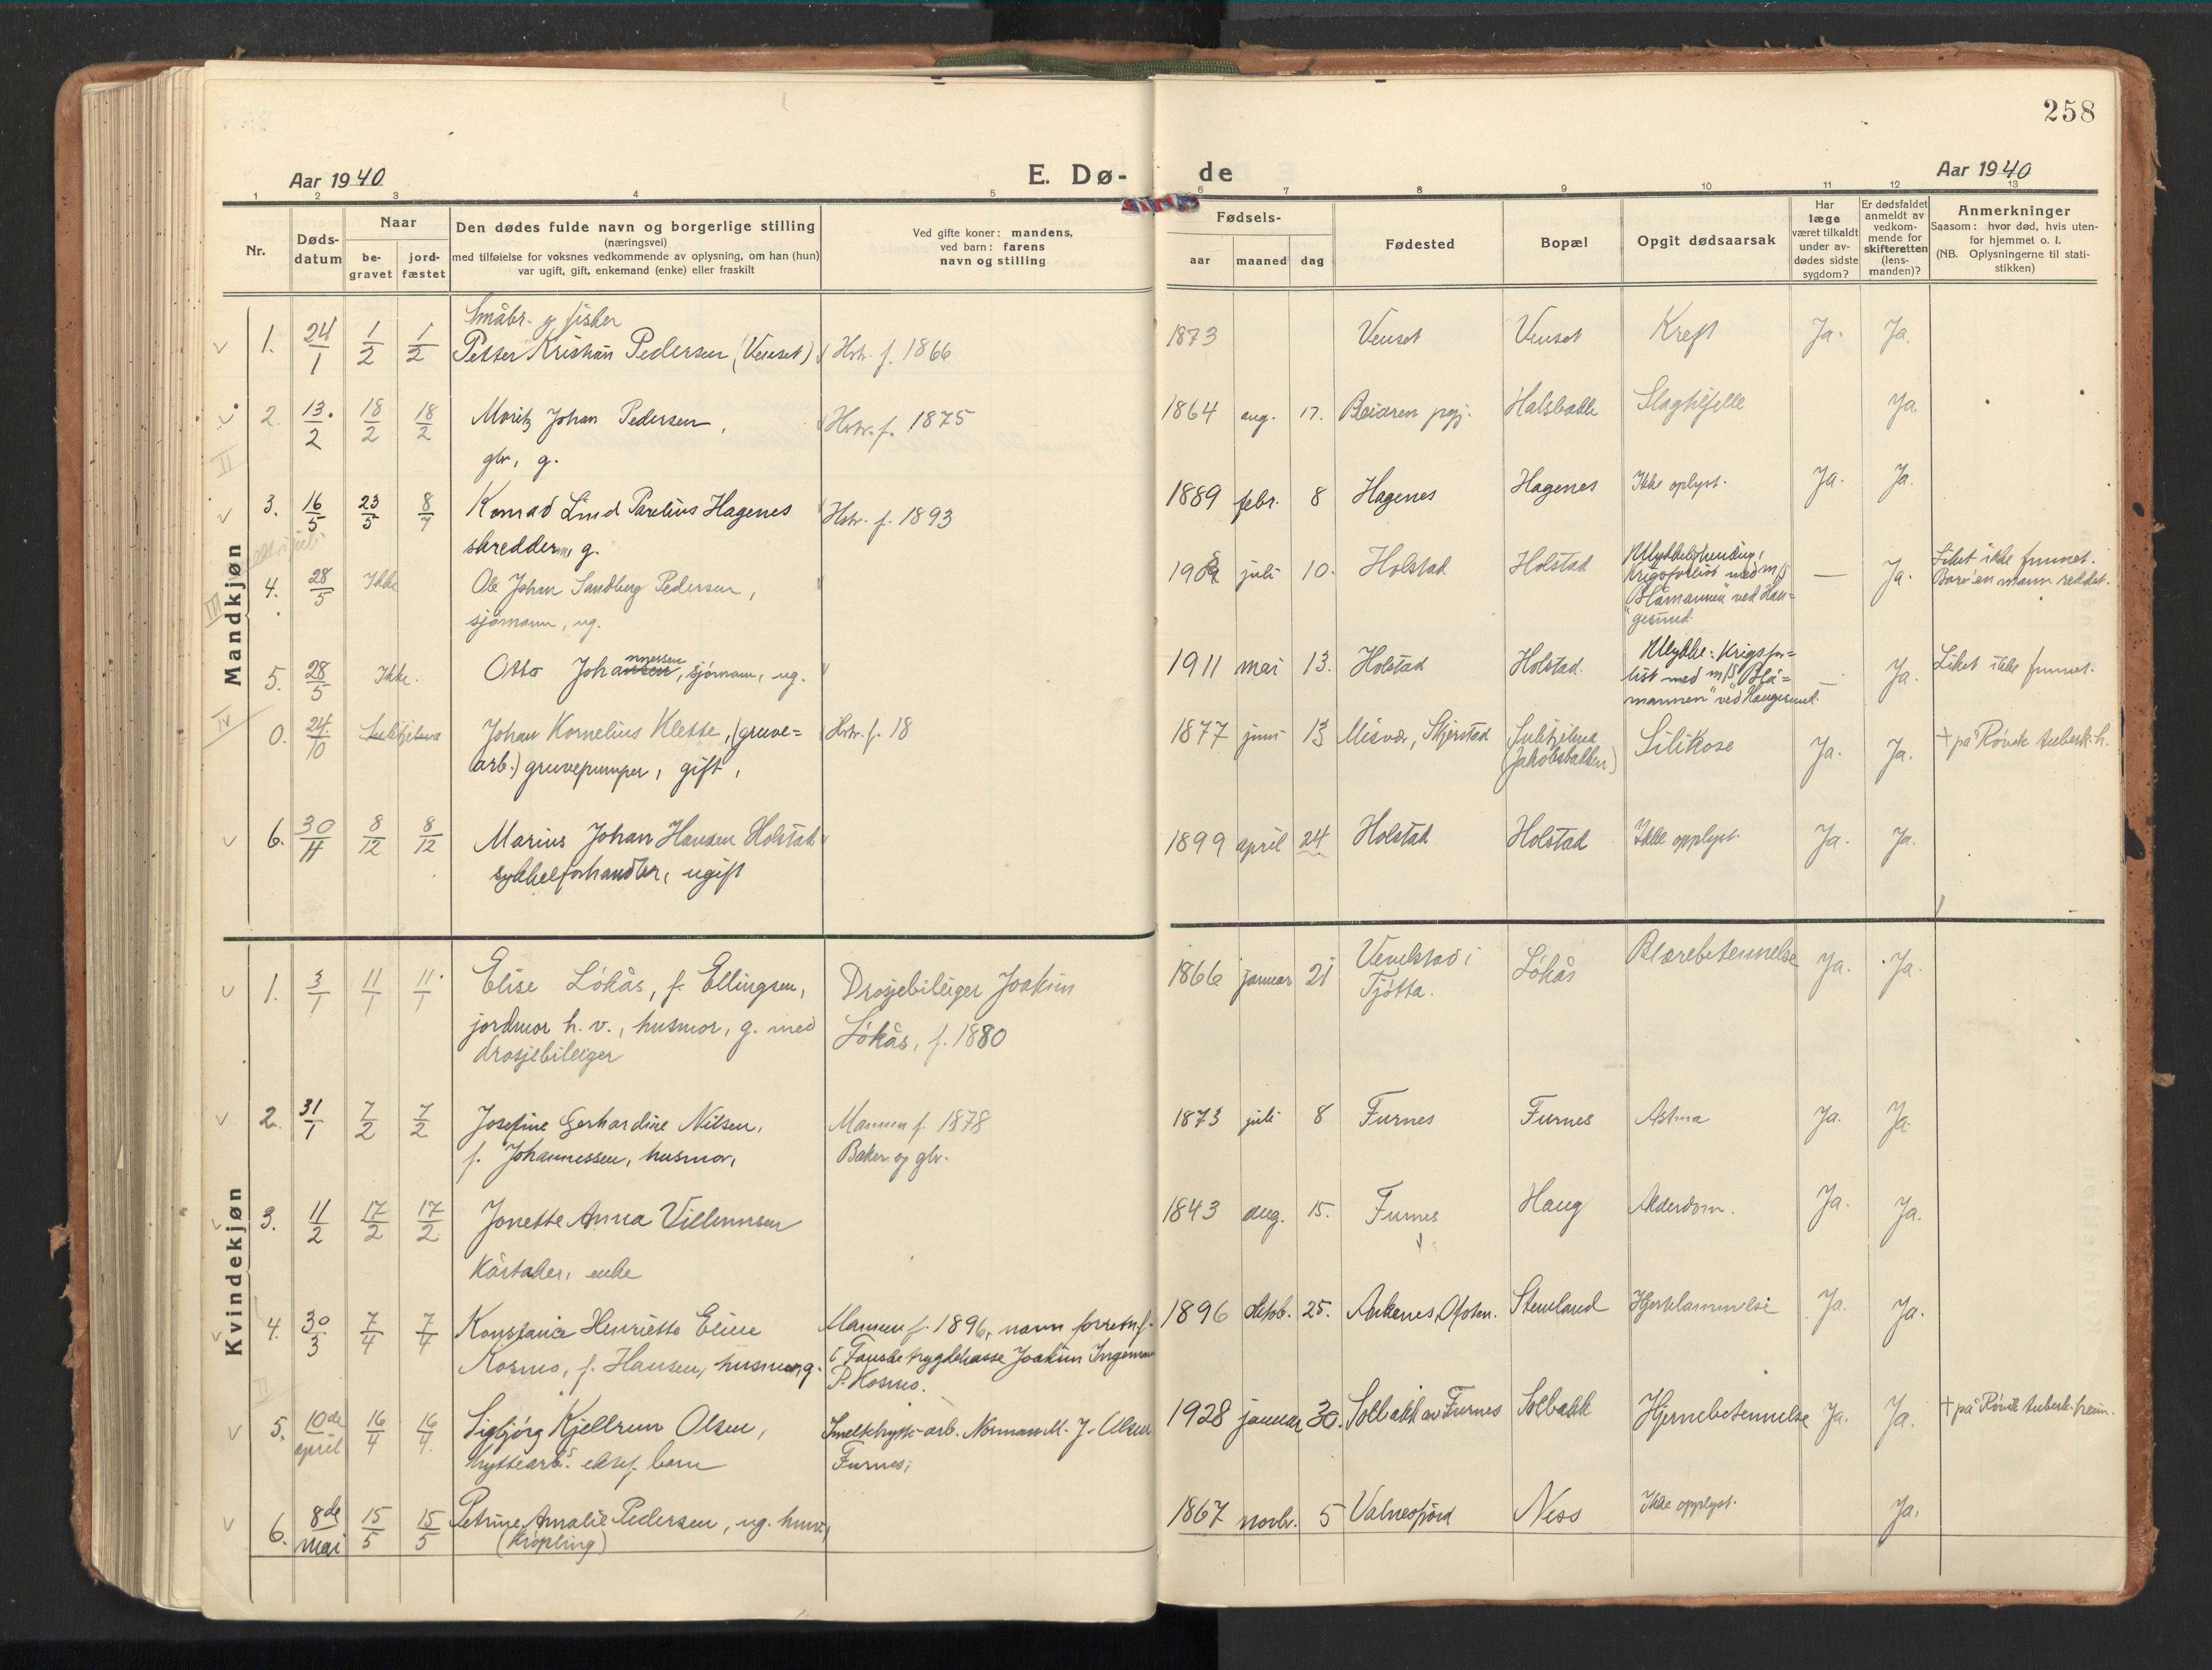 258
Aar 1940
E. Dø-
de
Aar 1940
1 2 3 4 5 6 7 8 9 10 11 12 13
Nr.
Døds-
datum
Naar
be-
gravet
jord-
fæstet
Den dødes fulde navn og borgerlige stilling
(næringsvei)
med tilføielse for voksnes vedkommende av oplysning, om han (hun)
var ugift, gift, enkemand (enke) eller fraskilt
Ved gifte koner: mandens,
ved barn: farens
navn og stilling
Fødsels-
aar maaned dag
Fødested
Bopæl
Opgit dødsaarsak
Har
læge
været tilkaldt
under av-
dødes sidste
sygdom?
Er dødsfaldet
anmeldt av
vedkom-
mende for
skifteretten
(lens-
manden)?
Anmerkninger
Saasom: hvor død, hvis uten-
for hjemmet o. l.
(NB. Oplysningerne til stati-
stikken)
Mandkjøn
Småbr. og fisker
1. 24/1 1/2 1/2 Petter Kristian Pedersen (Venset) Hstr. f. 1866 1873 Venset Venset Kreft Ja. Ja.
2. 13./2 18/2 18/2 Moritz Johan Pedersen, Hstr. f. 1875 1864 aug. 17. Beiaren pgj. Halsbakk Slagtilfelle Ja.
gbr, g.
II
3. 16/5 23/5 8/7 Konrad Lind Parelius Hagenes Hstr. f. 1893 1889 febr. 8 Hagenes Hagenes Ikke oplyst. Ja. Ja.
skredder, g.
III
4. 28/5 Ikke Ole Johan Sandberg Pedersen, juli 10. Holstad Holstad Ulykkeshending, — Ja. Liket ikke funnet.
sjømann, ug. Krigsforlist med m/s Bare én mann reddet.
"Blåmannen" ved Hau-
gesund.
5. 28/5 Ikke. Otto Johannessen, sjømann, ug. 1911 mai 13. Holstad Holstad. Ulykke: Krigsfor- — Ja. Liket ikke funnet.
list med m/S "Blå-
mannen" ved Haugesund.
IV
0. 24./10 Sulitjelma Johan Kornelius Klette, (gruve- Hstr. f. 18 1877 juni 13 Misvær, Skjerstad Sulitjelma Silikose Ja. Ja. † på Røvik tuberk.h.
arb.) gruvepumper, gift, (Jakobsbakken)
6. 30/11 8/12 8/12 Marius Johan Hansen Holstad 1899 april 24 Holstad Holstad Ikke opplyst. Ja. Ja.
sykkelforhandler, ugift
Kvindekjøn
1. 3/1 11/1 11/1 Elise Løkås, f. Ellingsen, Drosjebileiger Joakim 1866 januar 21 Venelstad i Løkås Blærebetennelse Ja. Ja.
jordmor h. v., husmor, g. med Løkås, f. 1880 Tjøtta.
drosjebileiger
2. 31/1 7/2 7/2 Josefine Gerhardine Nilsen, Mannen f. 1878 1873 juli 8 Furnes Furnes Astma Ja. Ja.
f. Johannessen, husmor, Baker og gbr.
3. 11/2 17/2 17/2 Jonette Anna Villumsen 1843 aug. 15. Furnes Haug Alderdom. Ja. Ja.
Kårtaker, enke
4. 30/3 7/4 7/4 Konstance Henriette Eline Mannen f. 1896, navn forretn.f. 1896 25. Ankenes, Ofoten. Stemland Hjertelammelse Ja. Ja.
Kosmo, f. Hansen, husmor, g. i Fauske trygdekasse Joakim Ingemann
P. Kosmo.
II
5. 10de april 16/4 16/4. Sigbjørg Kjellrun Olsen, Smeltehytte-arb. Norman M. J. Olsen 1928 januar 30. Solbakk av Furnes Solbakk Hjernebetennelse Ja. Ja. † på Røvik tuberk.heim.
hyttearb.s ektef. barn Furnes,
6. 8de mai 15/5 15/5 Petrine Amalie Pedersen, ug. 1867 novbr. 5 Valnesfjord Ness Ikke opplyst. Ja.
(krøpling)